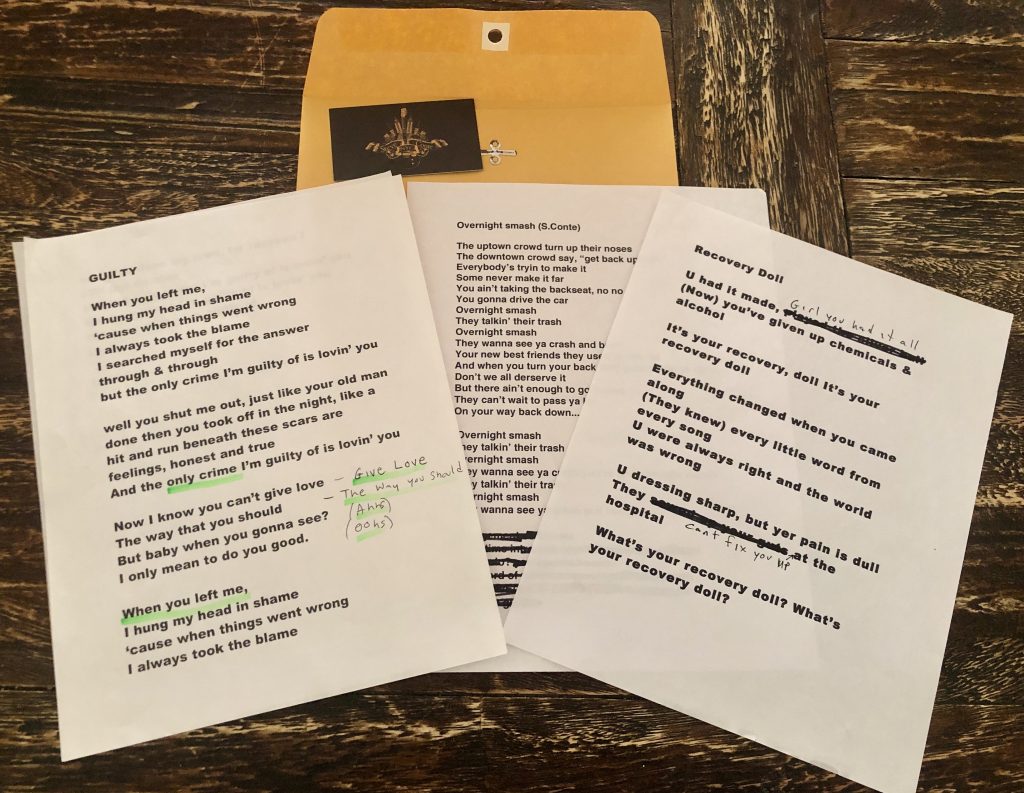 GUILTY
When you left me,
I hung my head in shame
‘cause when things went wrong
I always took the blame
I searched myself for the answer
through & through
but the only crime I’m guilty of is lovin’ you
well you shut me out, just like your old man
done then you took off in the night, like a
hit and run beneath these scars are
feelings, honest and true
And the only crime I’m guilty of is lovin’ you
Now I know you can’t give love
The way that you should
But baby when you gonna see?
I only mean to do you good.
– Give Love
– The way you should
(Ahhs)
(oohs)
When you left me,
I hung my head in shame
‘cause when things went wrong
I always took the blame
Overnight smash (S.Conte)
The uptown crowd turn up their noses
The downtown crowd say, “get back up
Everybody’s tryin to make it
Some never make it far
You ain’t taking the backseat, no no
You gonna drive the car
Overnight smash
They talkin’ their trash
Overnight smash
They wanna see ya crash and b
Your new best friends they use
And when you turn your back
Don’t we all derserve it
But there ain’t enough to go
They can’t wait to pass ya
On your way back down...
Overnight smash
hey talkin’ their trash
vernight smash
ey wanna see ya c
vernight smash
ey talkin’ their tra
vernight smash
ey wanna see ya
Recovery Doll
U had it made, Girl you had it all
(Now) you’ve given up chemicals &
alcohol
It’s your recovery, doll It’s your
recovery doll
Everything changed when you came
along
(They knew) every little word from
every song
U were always right and the world
was wrong
U dressing sharp, but yer pain is dull
They cant fix you up at the
hospital
What’s your recovery doll? What’s
your recovery doll?